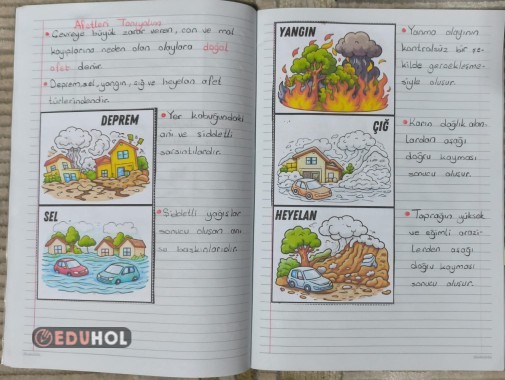 Afetleri Tanıyalım
• Çevreye büyük zarar veren, can ve mal
kayıplarına neden olan olaylara doğal
afet denir.
• Deprem, sel, yangın, çığ ve heyelan afet
türlerindendir.
DEPREM
• Yer kabuğundaki
ani ve şiddetli
sarsıntılardır.
SEL
• Şiddetli yağışlar
sonucu oluşan ani
su baskınlarıdır.
EDUHOL
YANGIN
• Yanma olayının
kontrolsüz bir şe-
kilde gerçekleşme-
siyle oluşur.
ÇIĞ
• Karın dağlık alan-
lardan aşağı
doğru kayması
sonucu oluşur.
HEYELAN
• Toprağın, yüksek
ve eğimli arazi-
lerden aşağı
doğru kayması
sonucu oluşur.